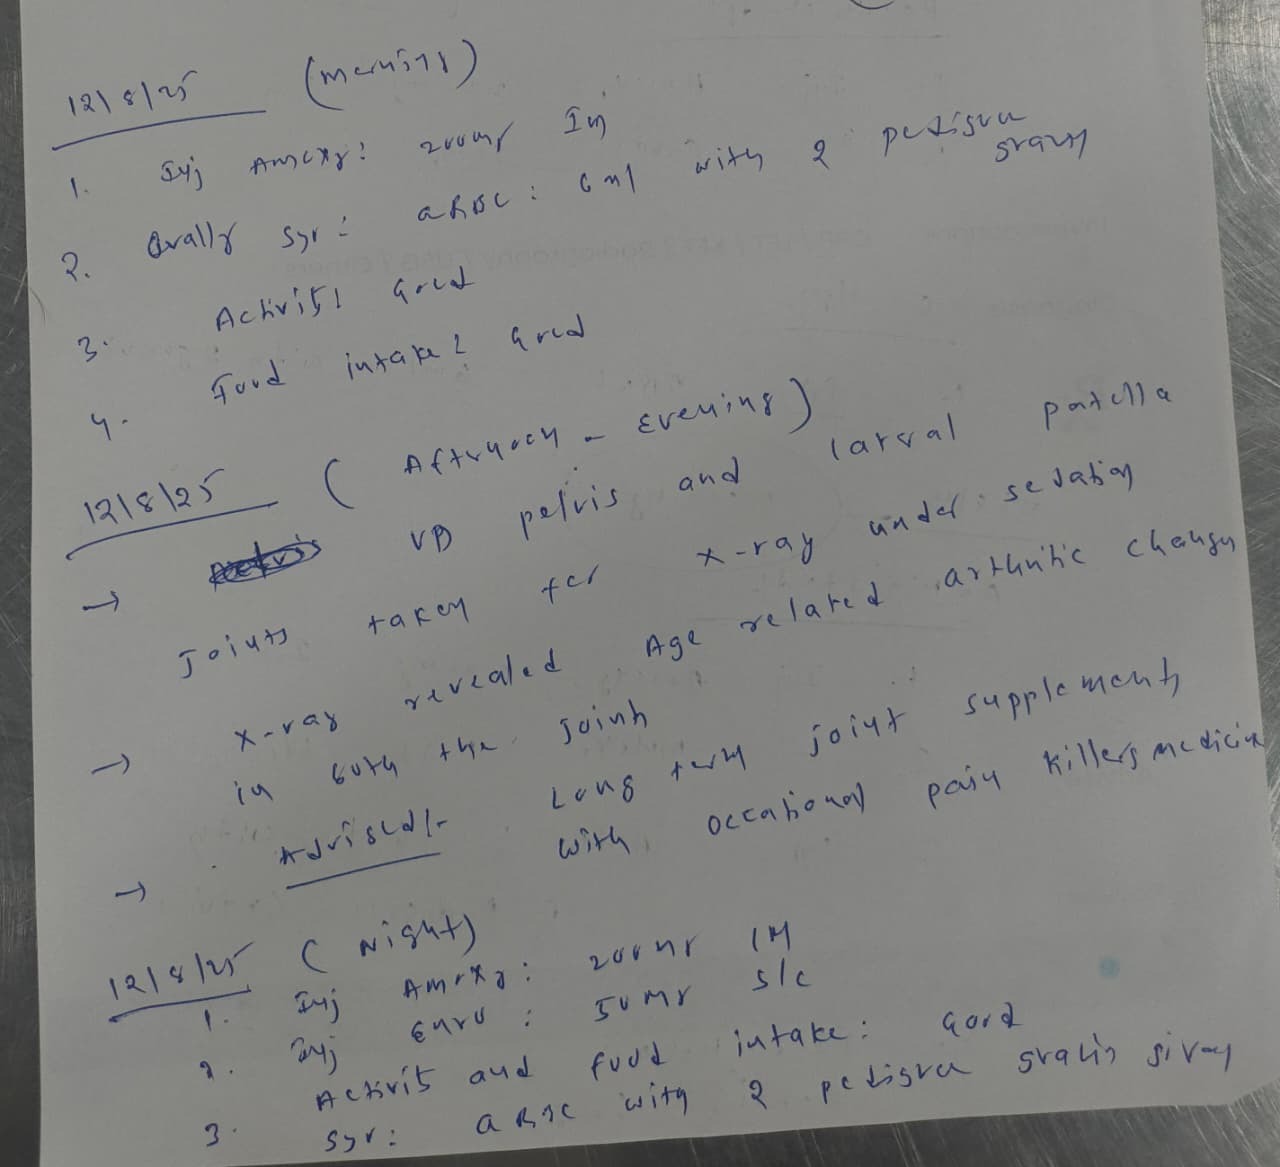 12/8/25 (morning)
1. Inj Amoxy: 200mg IM
2. Orally syr: aRBC: 6ml with 2 pedigree gravy
3. Activity: Good
4. Food intake: Good
12/8/25 (Afternoon - Evening)
→ VD pelvis and lateral patella
Joints taken for x-ray under sedation
→ X-ray revealed Age related arthritic changes
in both the joints
→ Advised:- Long term joint supplements
with occational pain killers medicine
12/8/25 (Night)
1. Inj Amoxy: 200mg IM
2. Inj Enro: 50mg s/c
3. Activity and food intake: Good
Syr: aRBC with 2 pedigree gravies given